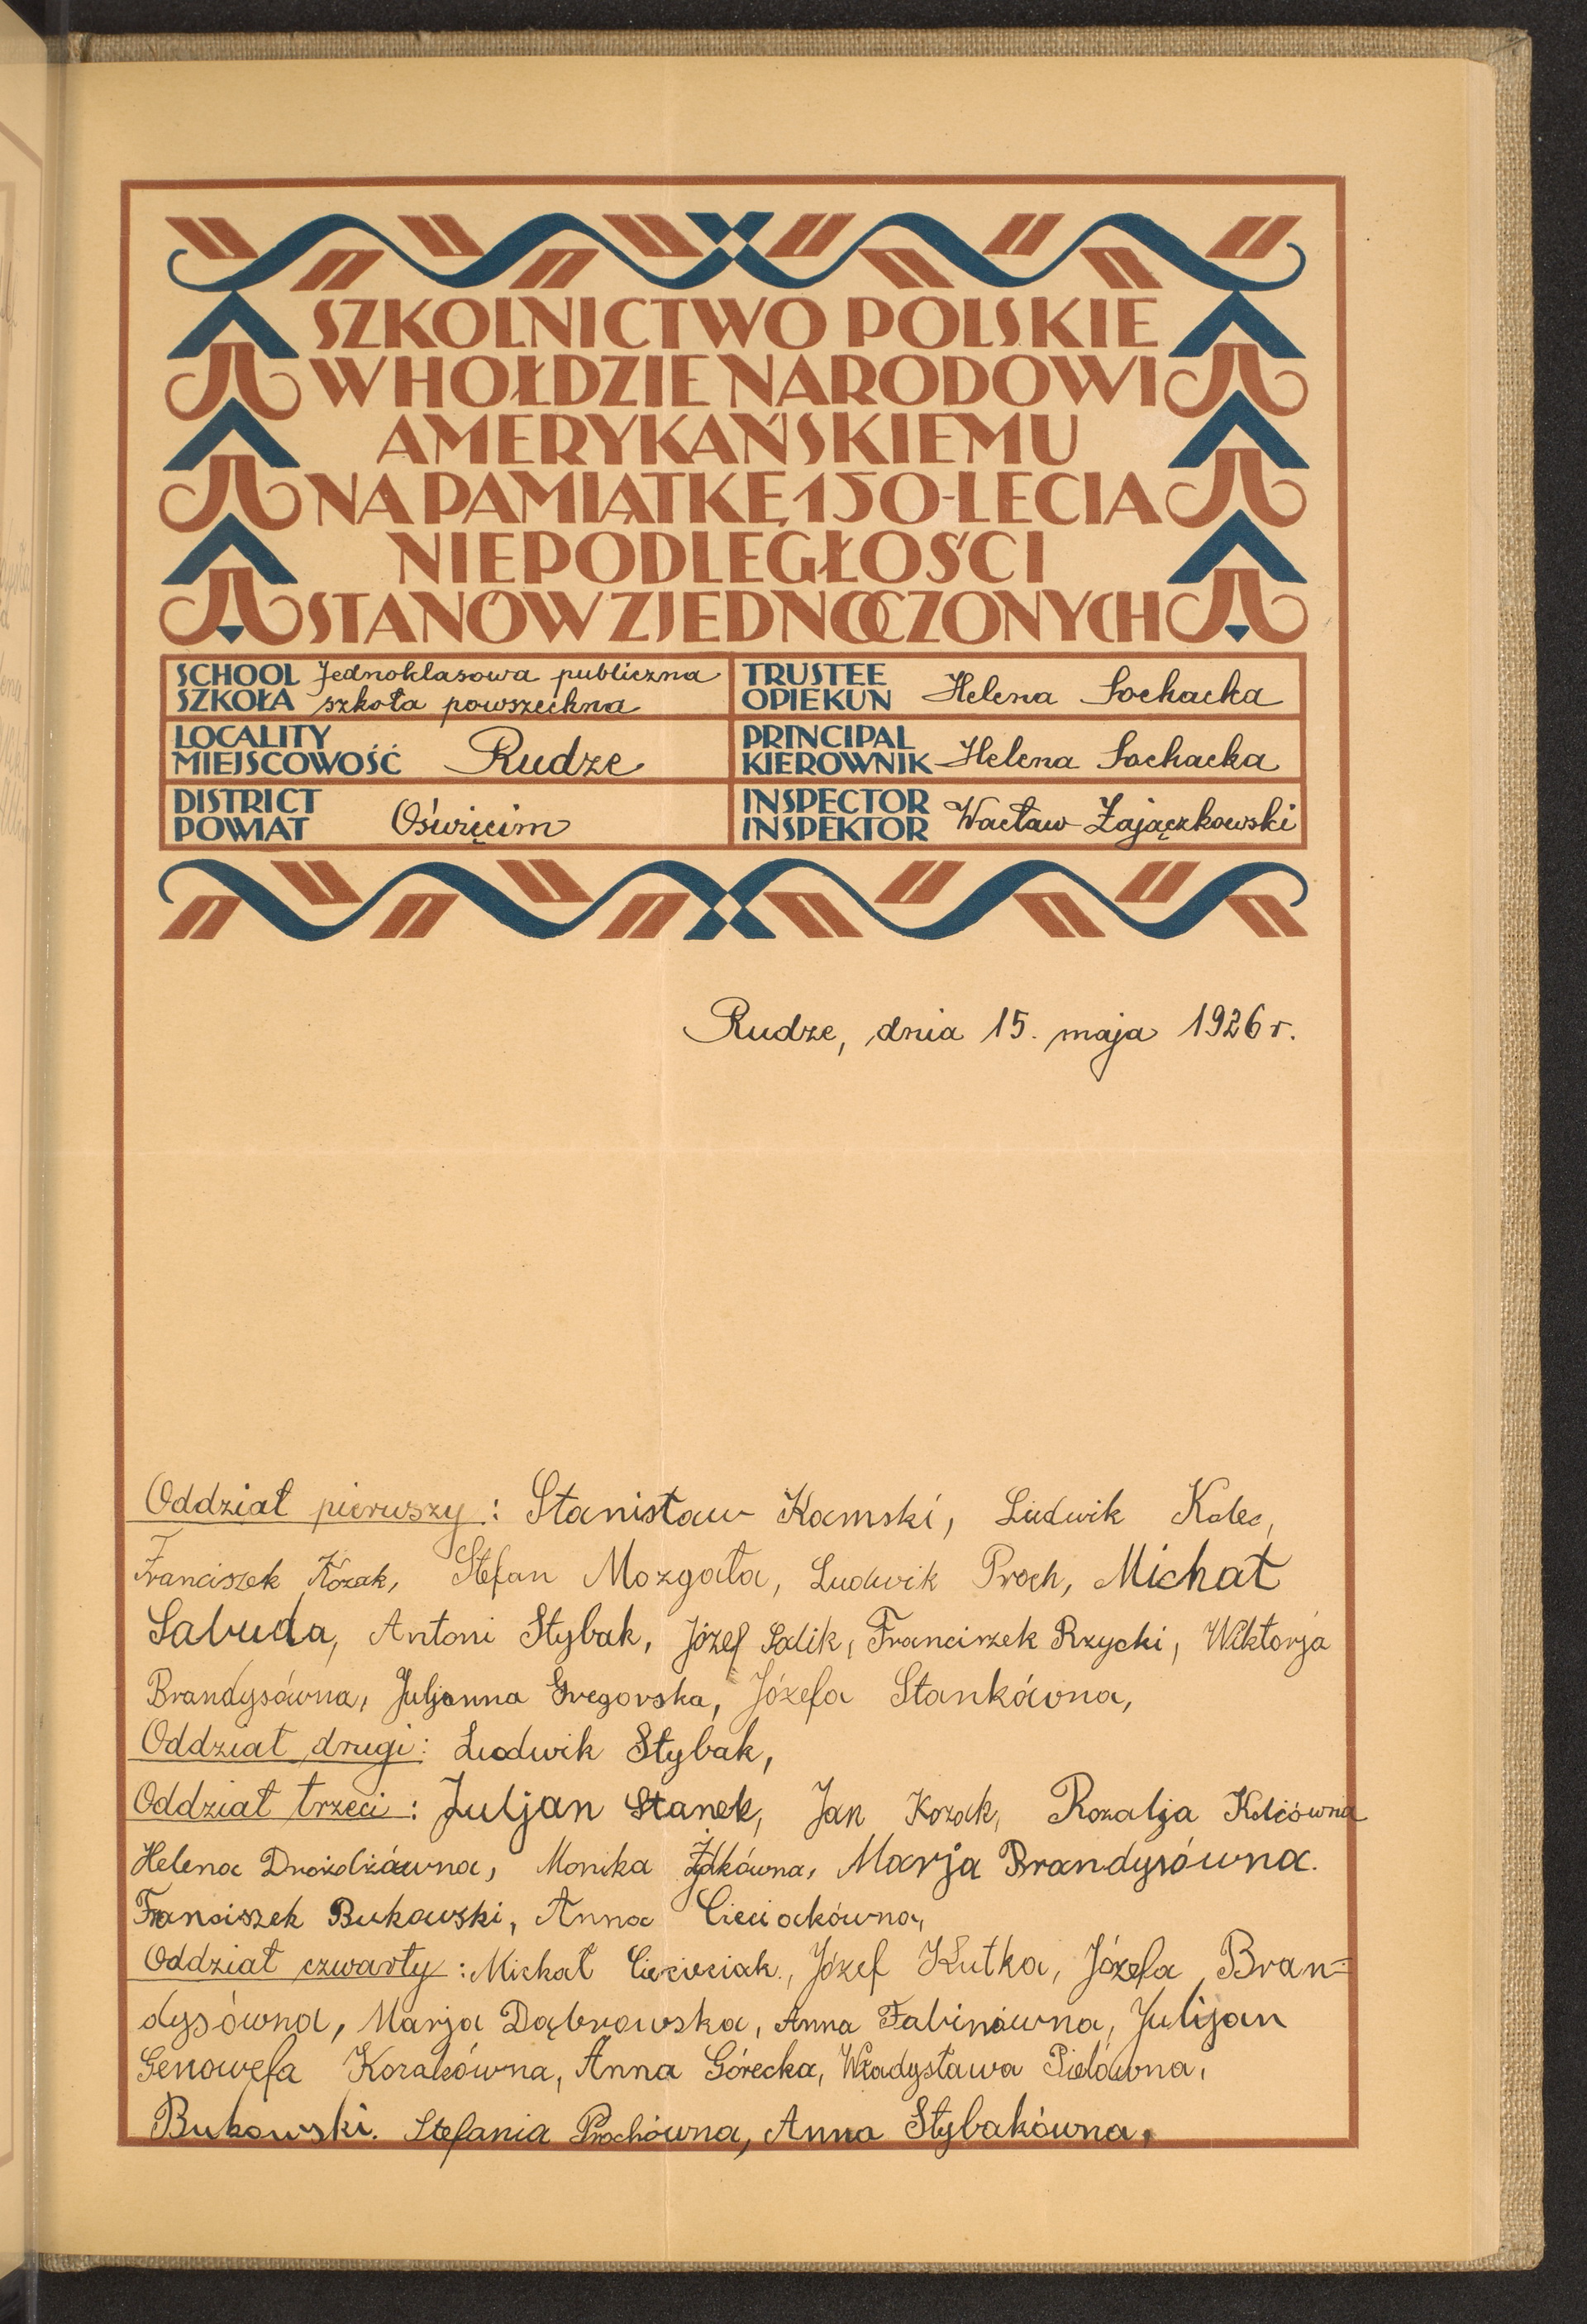 SZKOLNICTWO POLSKIE
W HOŁDZIE NARODOWI
AMERYKAŃSKIEMU
NA PAMIĄTKĘ 150-LECIA
NIEPODLEGŁOŚCI
STANÓW ZJEDNOCZONYCH
SCHOOL Jednoklasowa publiczna
SZKOŁA szkoła powszechna
TRUSTEE
OPIEKUN Helena Sochacka
LOCALITY
MIEJSCOWOŚĆ Rudze
PRINCIPAL
KIEROWNIK Helena Sochacka
DISTRICT
POWIAT Oświęcim
INSPECTOR
INSPEKTOR Wacław Zajączkowski
Rudze, dnia 15. maja 1926 r.
Oddział pierwszy: Stanisław Kamski, Ludwik Kolec,
Franciszek Kozak, Stefan Mozgała, Ludwik Proch, Michał
Sabuda, Antoni Stybak, Józef Salik, Franciszek Rzycki, Wiktorja
Brandysówna, Juljanna Gregorska, Józefa Stankówna,
Oddział drugi: Ludwik Stybak,
Oddział trzeci: Juljan Stanek, Jan Kozak, Rozalja Kolcówna
Helena Drożdżówna, Monika Żydkówna, Marja Brandysówna.
Franciszek Bukowski, Anna Cieciakówna,
Oddział czwarty: Michał Józef Kutka, Józefa Bran=
dysówna, Marja Dąbrowska, Anna Fabinówna, Julijan
Genowefa Kozakówna, Anna Górecka, Władysława Pielówna,
Bukowski. Stefania Prochówna, Anna Stybakówna.